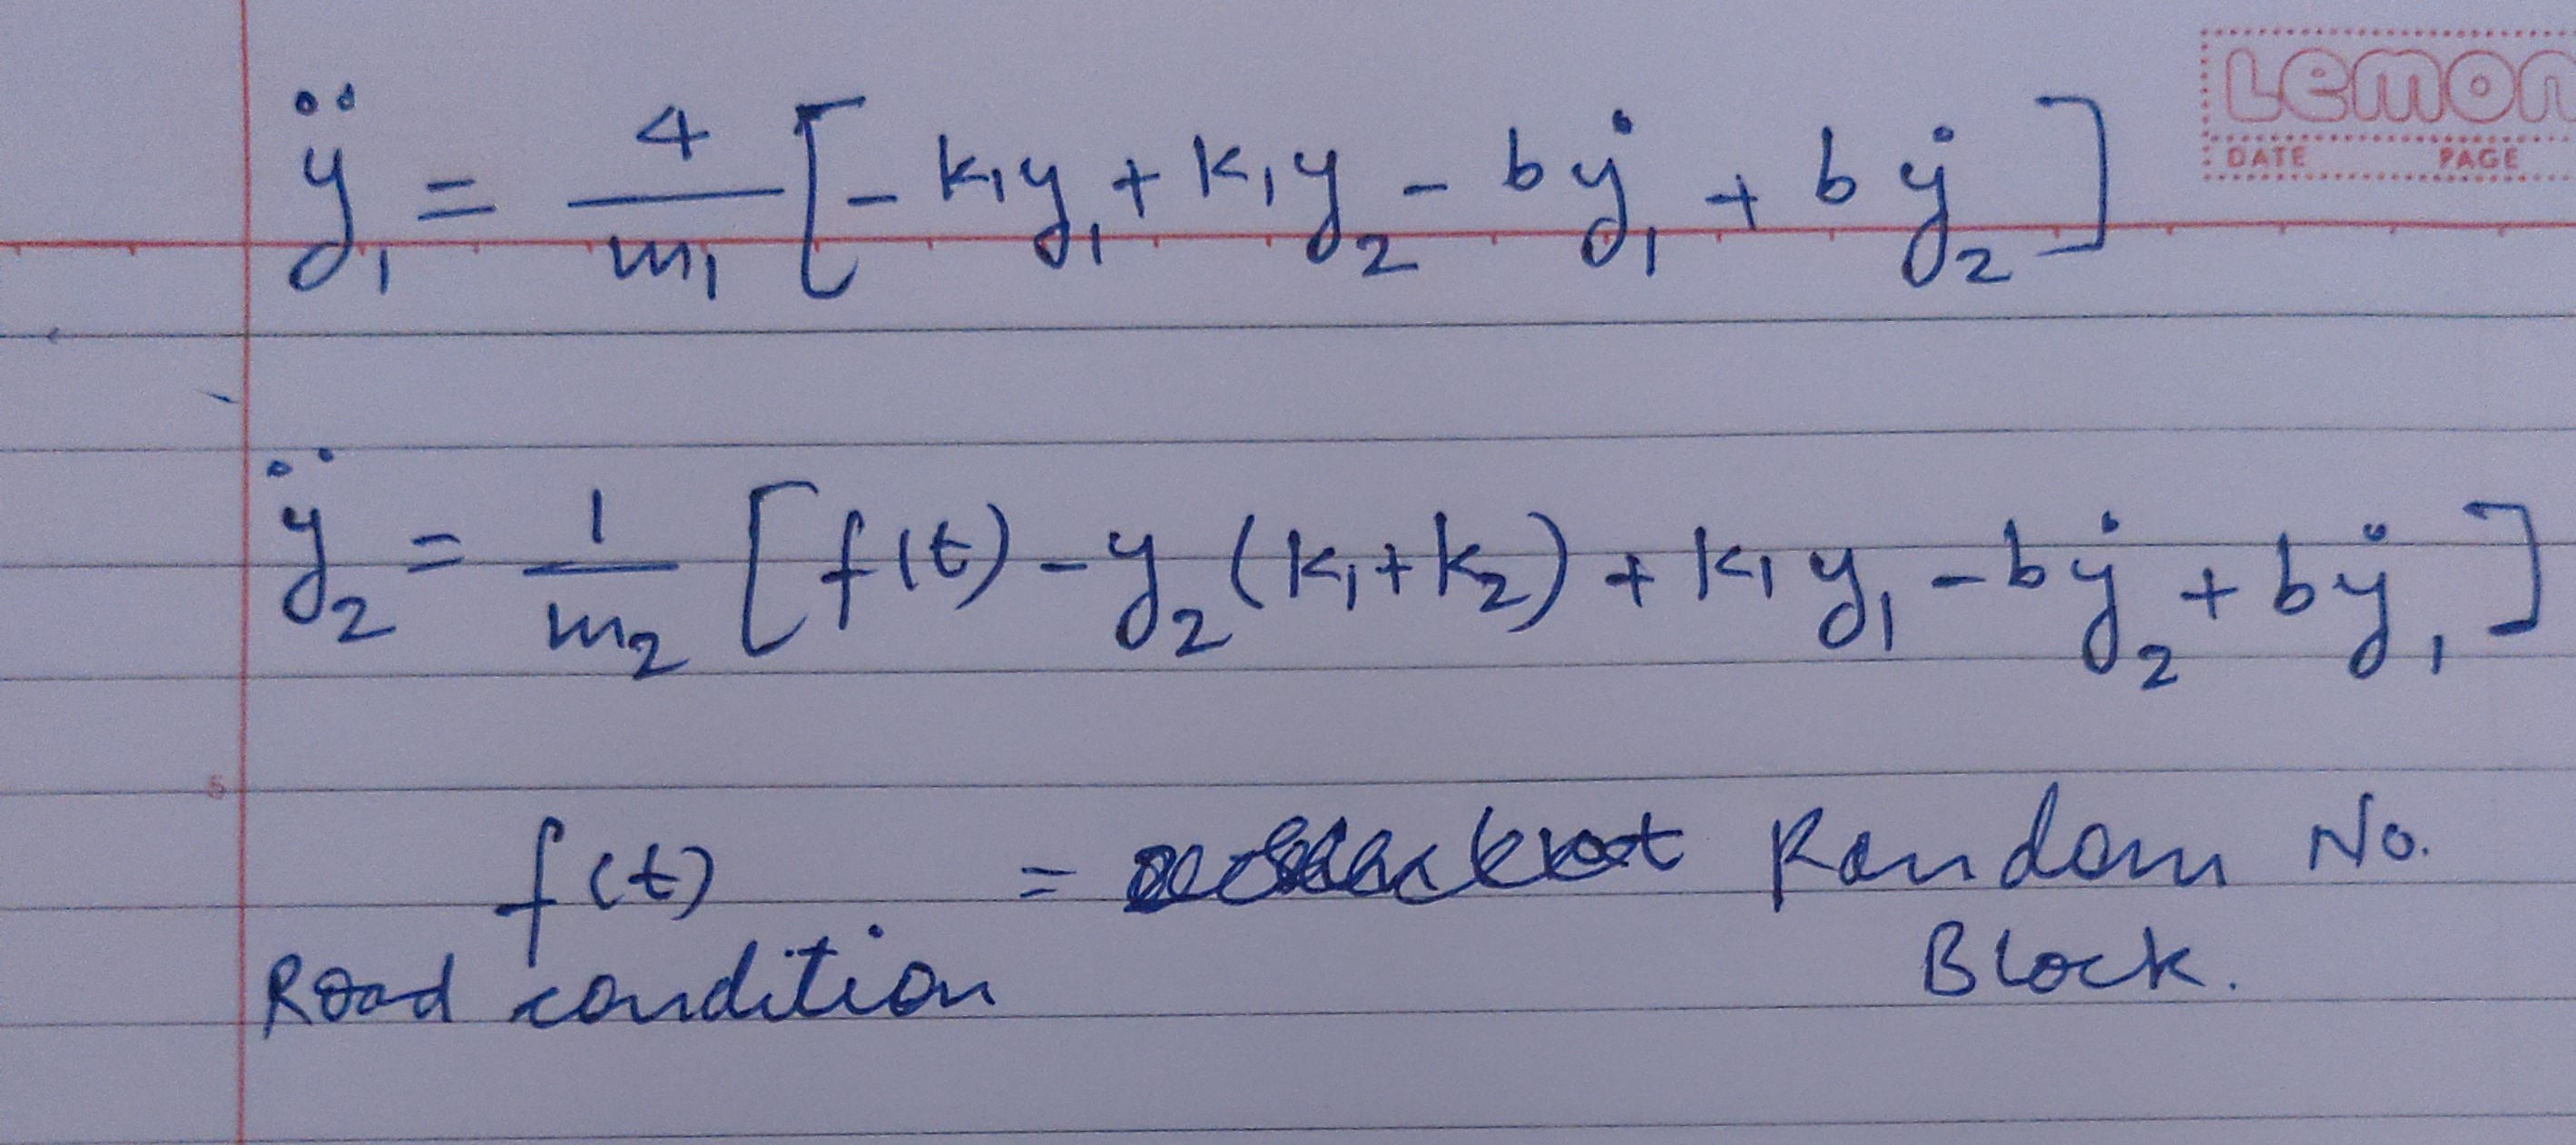 Lemon
DATE PAGE
ÿ₁ = 4/m₁ [- k₁y₁ + k₁y₂ - bẏ₁ + bẏ₂]
ÿ₂ = 1/m₂ [f(t) - y₂(k₁+k₂) + k₁y₁ - bẏ₂ + bẏ₁]
f(t) = Random No.
Road condition Block.